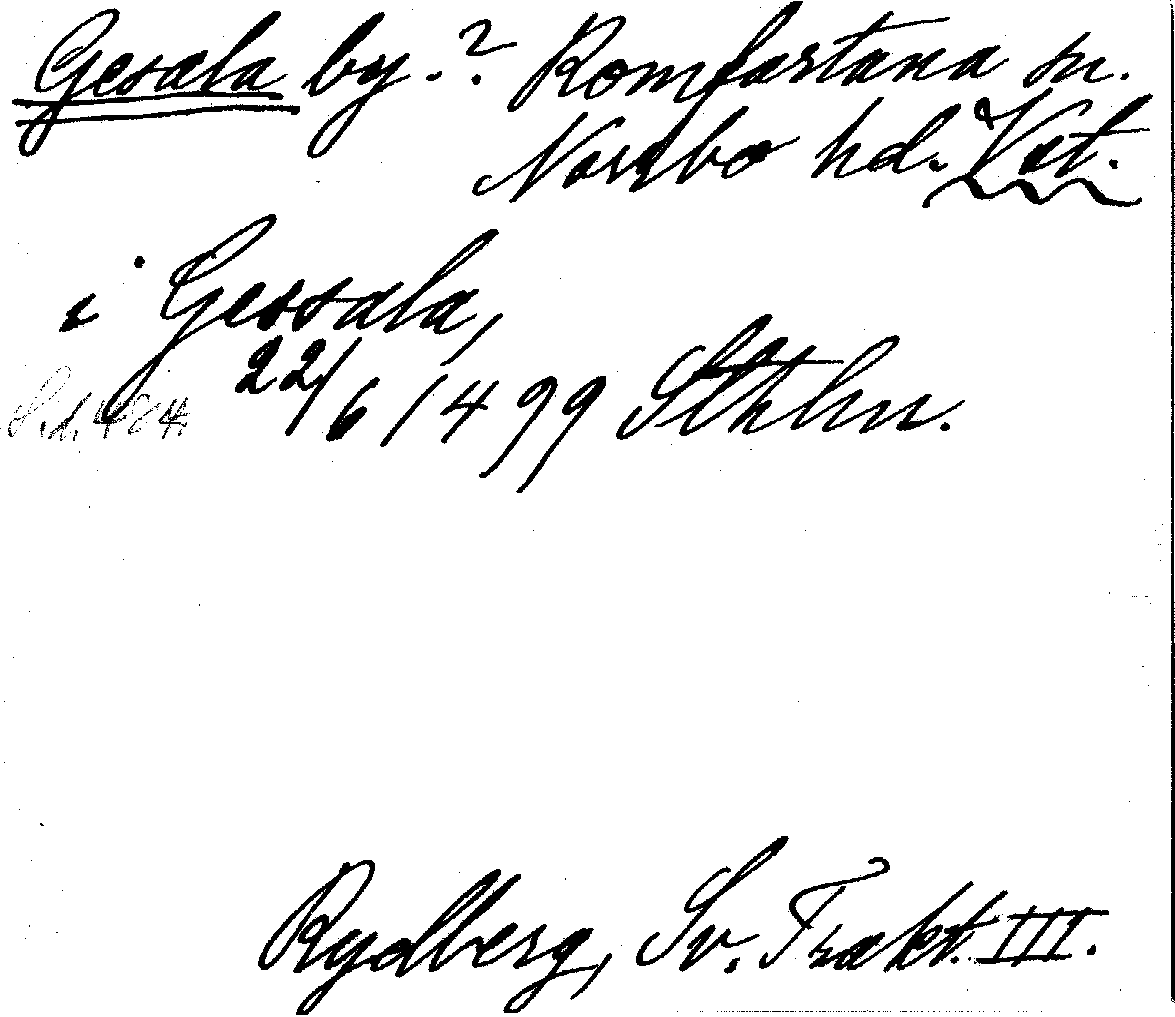 Gesala by.? Romfartuna sn.
Norrbo hd. Vstm.
i Gessala,
22/6 1499 Sthlm.
S.d. 484.
Rydberg, Sv. Trakt. III.